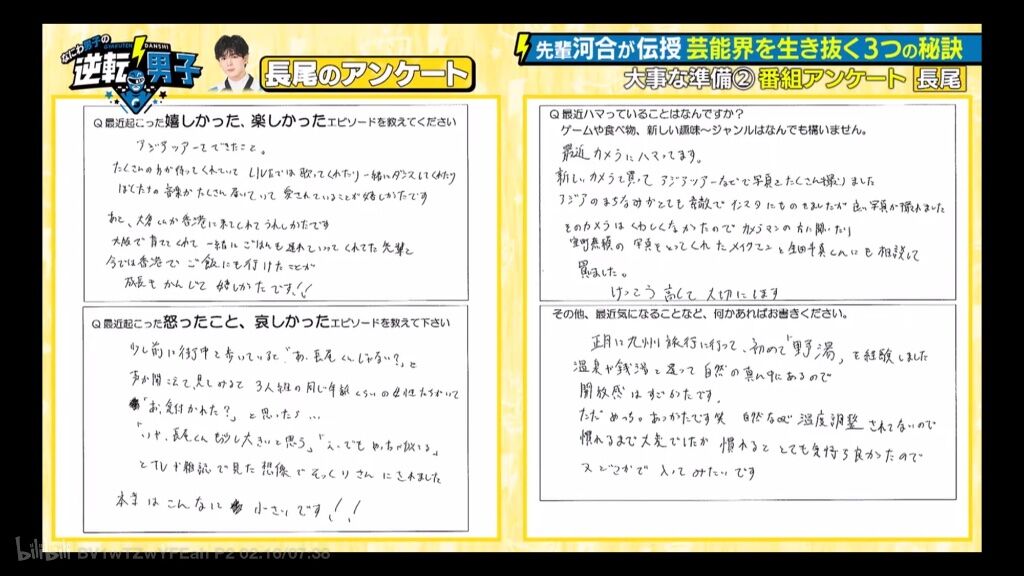 なにわ男子の
GYAKUTEN DANSHI
逆転男子
長尾のアンケート
先輩河合が伝授 芸能界を生き抜く3つの秘訣
大事な準備② 番組アンケート 長尾
Q最近起こった嬉しかった、楽しかったエピソードを教えてください
アジアツアーできたこと。
たくさんの方が待ってくれていて LIVEでは歌ってくれたり一緒にダンスしてくれたり
ぼくたちの音楽がたくさん届いていて 愛されていることが嬉しかったです
あと、大倉くんが香港に来てくれてうれしかったです
大阪で育てくれて 一緒にごはんも連れていってくれてた先輩と
今では香港でご飯にも行けたことが
成長も かんじて 嬉しかったです!!
Q最近起こった怒ったこと、哀しかったエピソードを教えて下さい
少し前に街中を歩いていると「あ、長尾くんじゃない?」と
声が聞こえて、見てみると 3人組の同じ年齢くらいの女性たちがいて
「お、気付かれた?」と思ったら…
「いや、長尾くんもう少し大きいと思う」「え、でもめっちゃ似てる」
とTVや雑誌で見た想像でそっくりさんにされました
本来はこんなに 小さいです!!
Q最近ハマっていることはなんですか?
ゲームや食べ物、新しい趣味～ジャンルはなんでも構いません。
最近カメラにハマってます。
新しいカメラを買って アジアツアーなどで写真をたくさん撮りました
アジアのまちなみがとても素敵で インスタにものせましたが 良い写真が撮れました
そのカメラはくわしくなかったので カメラマンの方に聞いたり
写真をとってくれたメイクさんと にも相談して
買ました。
けっこう高くて 大切にします
その他、最近気になることなど、何かあればお書きください。
正月に九州旅行に行って、初めて「野湯」を経験しました
温泉や銭湯と違って 自然の真ん中にあるので
開放感はすごかったです。
ただめっちゃあつかたです笑 自然なので 温度調整されてないので
慣れるまで大変でしたが 慣れると とても気持ち良かったので
又どこかで 入ってみたいです
bilibili